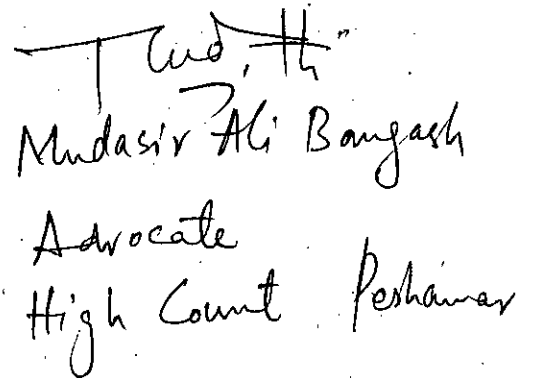 Mudasir Ali Bangash
Advocate
High Court Peshawar